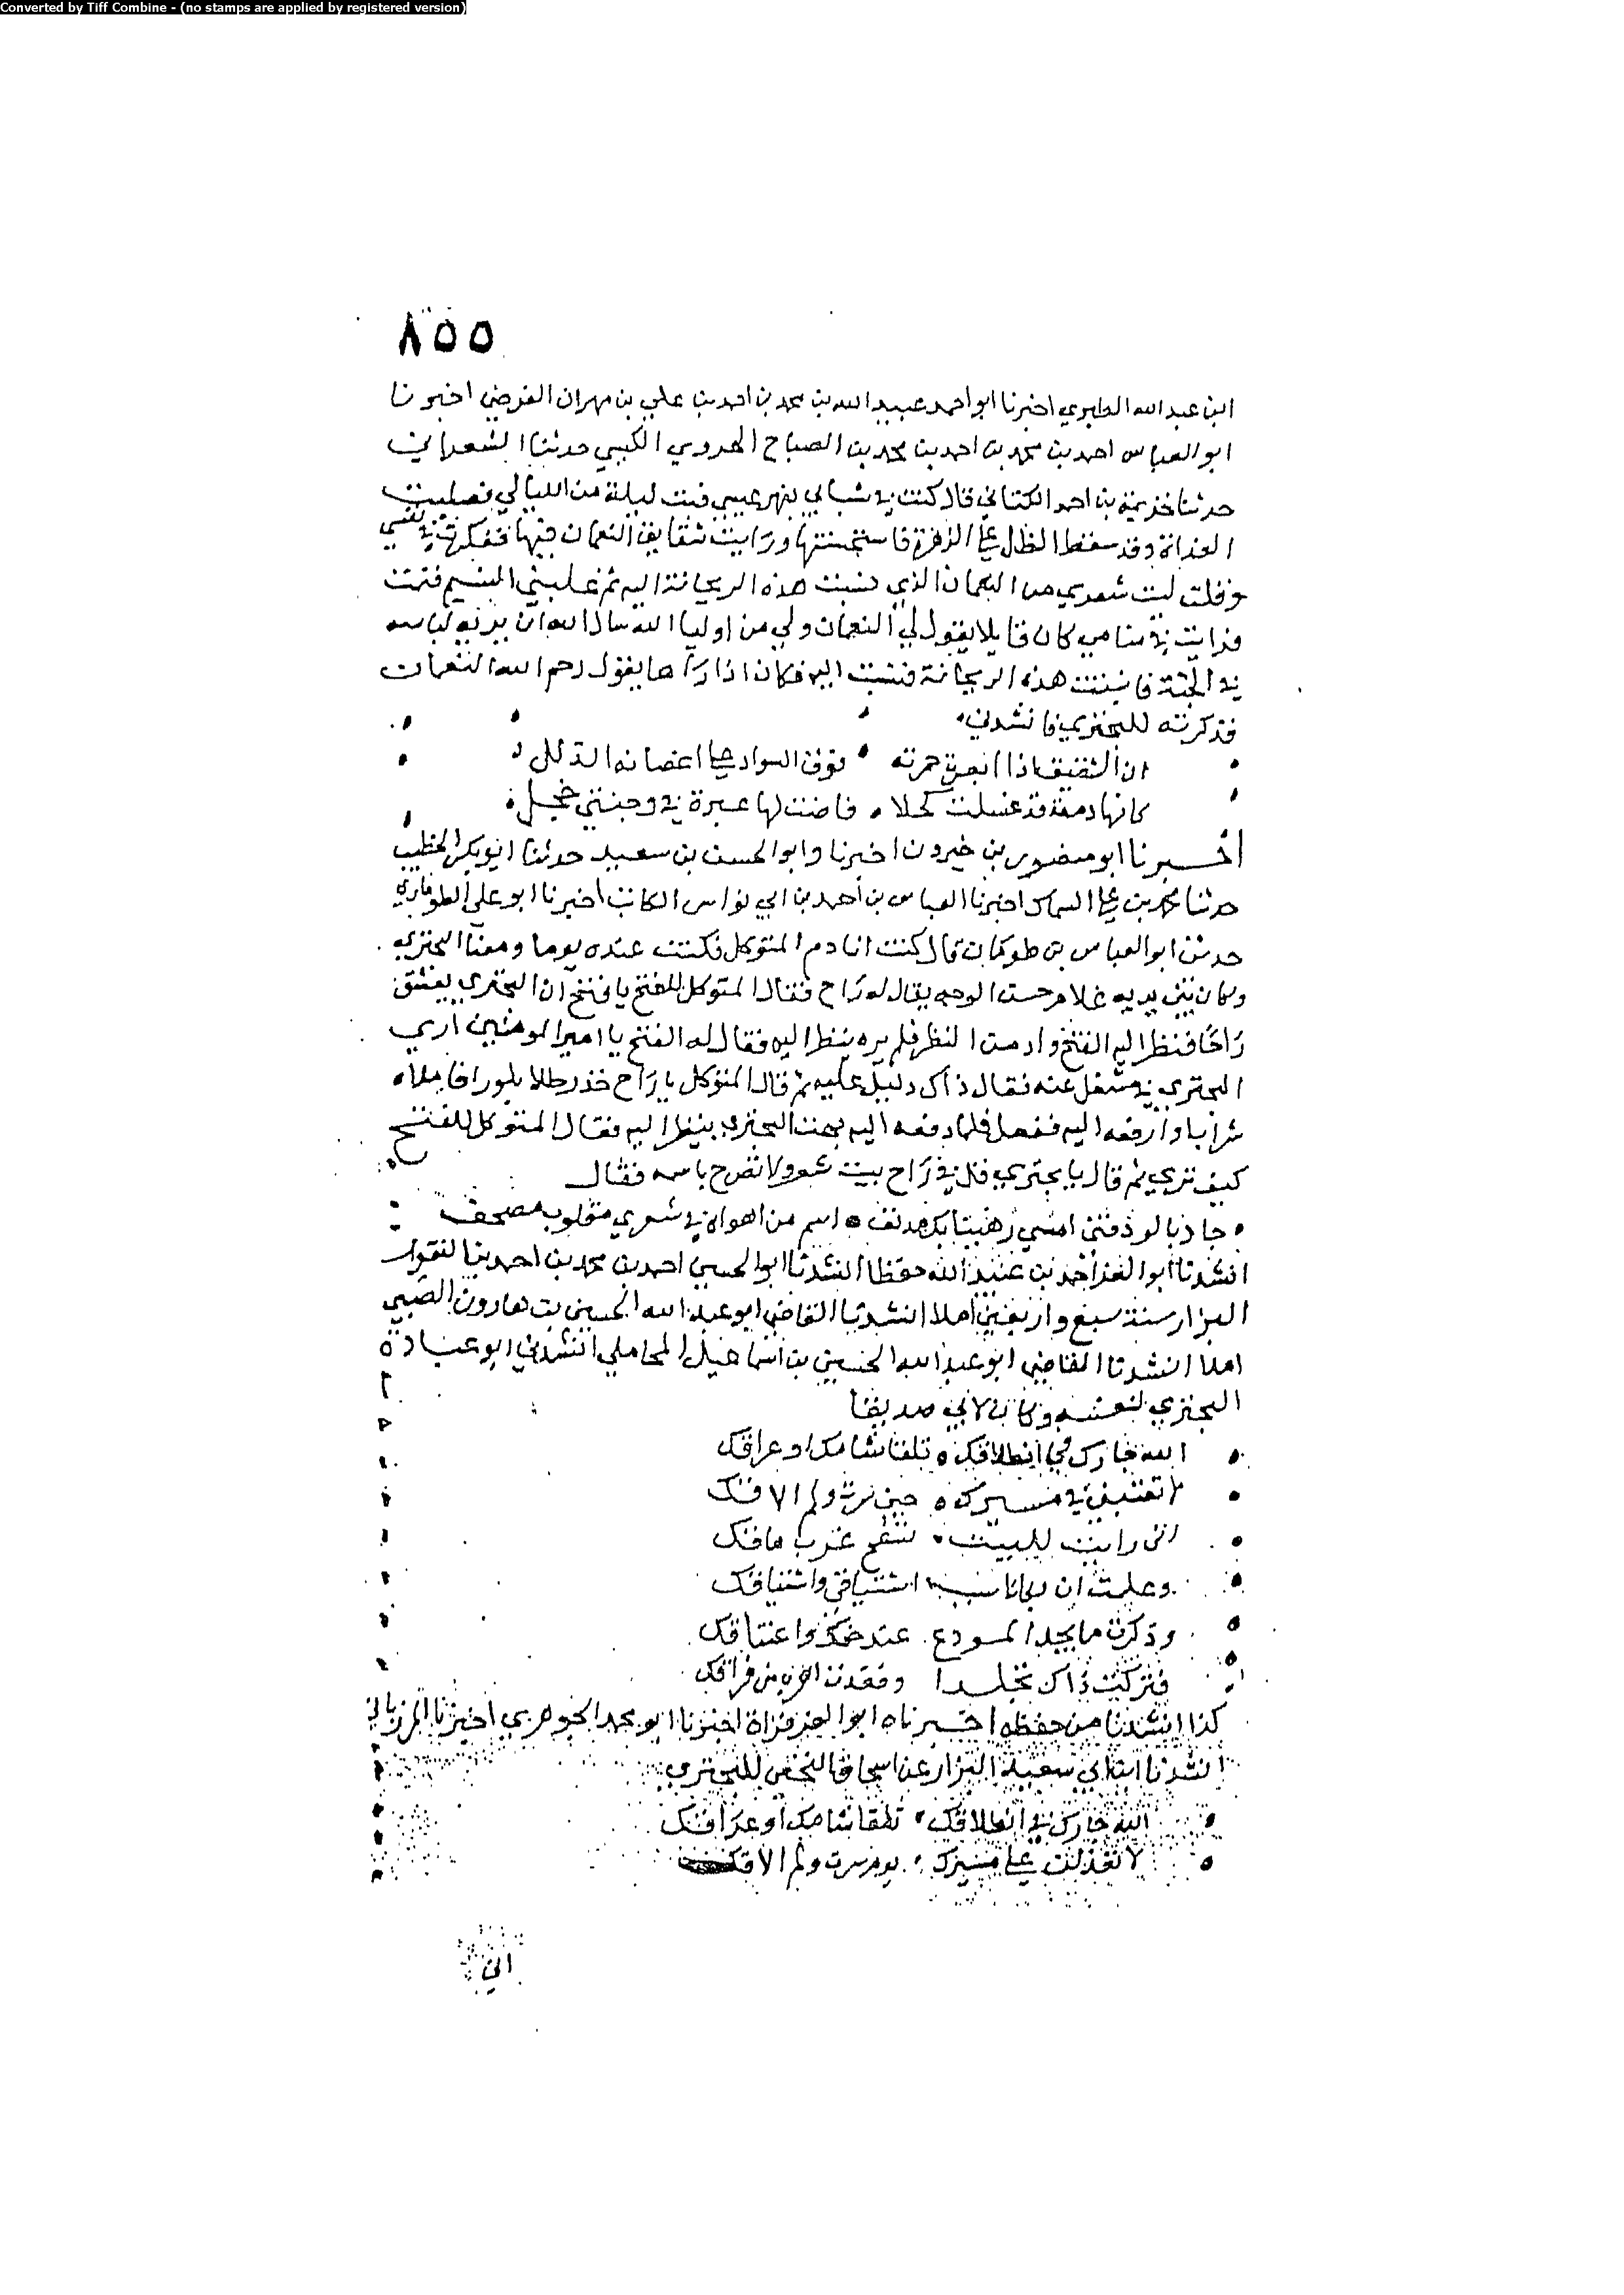 Converted by Tiff Combine - (no stamps are applied by registered version)
٨٥٥
ابن عبد الله الطبري اخبرنا ابو احمد عبيد الله بن محمد بن احمد بن علي بن مهران الفرضي اخبرنا
ابو العباس احمد بن محمد بن احمد بن محمد بن الصباح الهروي الكبي حدثنا الشعراني
حدثنا خذيمة بن احمد الكتاني قال كنت في شبابي بنهر عيسي فبت ليلة من الليالي فصليت
الغداة وقد سقط الطل علي الزهرة فاستحسنتها ورايت شقايق النعمان فيها ففكرت في نفسي
وقلت ليت شعري من النعمان الذي نسبت هذه الريحانة اليه ثم غلبني النسيم فنمت
فرايت في منامي كان قايلا يقول لي النعمان ولي من اوليا الله سال الله ان يريه لباسه
في الجنة فانبتت هذه الريحانة فنسبت اليه فكان اذا راها يقول رحم الله النعمان
فذكرته للبحتري فانشدني
ان الشقيق اذا حمرته فوق السواد علي اغصانه الذلل
كانها دمعة قد غسلت كحلا فاضت لها عبرة في وجنتي خجل
اخبرنا ابو منصور بن خيرون اخبرنا وابو الحسن بن سعيد حدثنا ابو بكر الخطيب
حدثنا محمد بن علي السماك اخبرنا العباس بن احمد بن ابي نواس الكاتب اخبرنا ابو علي الطوماري
حدثني ابو العباس بن طومان قال كنت انادم المتوكل فكنت عنده يوما ومعنا البحتري
وكان بين يديه غلام حسن الوجه يقال له راح فقال المتوكل للفتح يا فتح ان البحتري يعشق
راحًا فنظر اليه الفتح وادمن النظر فلم يره ينظر اليه فقال له الفتح يا امير المومنين اري
البحتري في شغل عنه فقال ذاك دليل عليه ثم قال المتوكل يا راح خذ رطلا بلورا فاملاه
شرابا وادفعه اليه ففعل فلما دفعه اليه بهت البحتري ينظر اليه فقال المتوكل للفتح
كيف تري ثم قال يا بحتري قل في راح بيت شعر ولا تصرح باسمه فقال
حاز بالود فتى امسي رهينا بك مدنف اسم من اهواه في شعري مقلوب مصحف
انشدنا ابو العز احمد بن عبيد الله حفظا انشدنا ابو الحسين احمد بن محمد بن احمد بن النقور
البزار سنة سبع واربعين املا انشدنا القاضي ابو عبد الله الحسين بن هارون الضبي
املا انشدنا القاضي ابو عبد الله الحسين بن اسماعيل المحاملي انشدني ابو عبادة
البحتري لنفسه وكان لابي صديقا
الله جارك في انطلاقك تلقا شامك او عراقك
لا في مسيرك حين سرت ولم الاقك
اني رايت للبيت تسفح غرب ماقك
وعلمت ان اشتياقي واشتياقك
وذكرت ما يجد المودع عند ضمك واعتناقك
فتركت ذاك تجلدا وقعدت اهرب من فراقك
كذا انشدنا من حفظه اخبرناه ابو العز قراة اخبرنا ابو محمد الجوهري اخبرنا المرزباني
انشدنا ابن ابي سعيد البزار عن اسحاق النخعي للبحتري
الله جارك في انطلاقك تلقا شامك او عراقك
لا تعذلني علي مسيرك يوم سرت ولم الاقك
اني